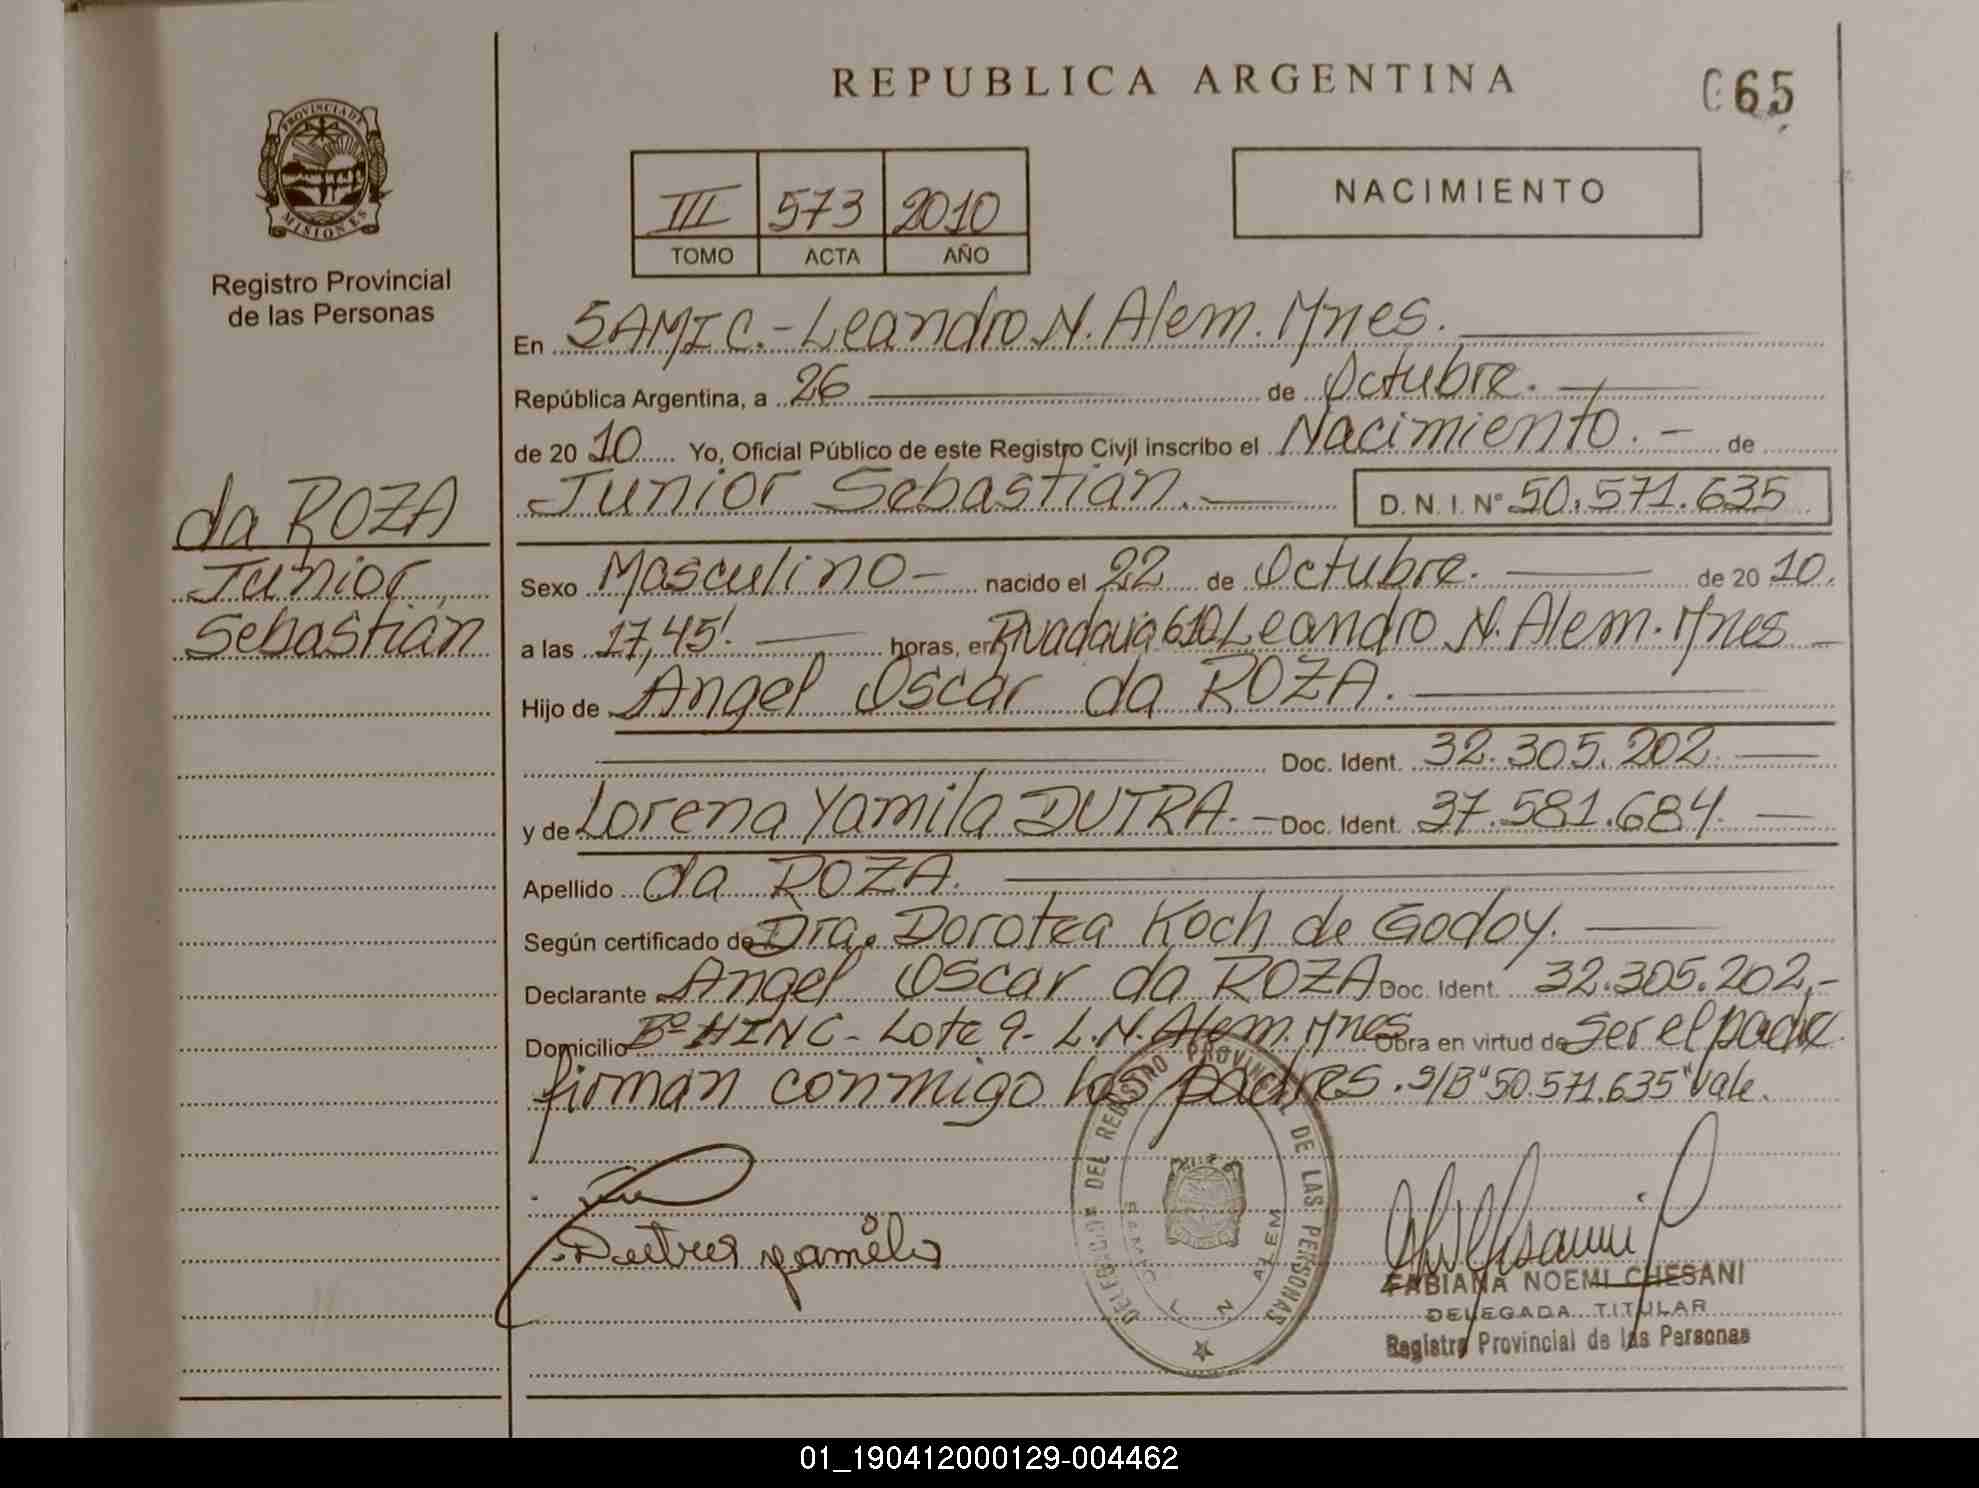 PROVINCIA DE
MISIONES
Registro Provincial
de las Personas
da ROZA
Junior
Sebastián
REPUBLICA ARGENTINA
065
III 573 2010
TOMO ACTA AÑO
NACIMIENTO
En SAMIC.- Leandro N. Alem. Mnes.
República Argentina, a 26 de Octubre.
de 2010 Yo, Oficial Público de este Registro Civil inscribo el Nacimiento.- de
Junior Sebastián.- D.N.I. Nº 50.571.635
Sexo Masculino- nacido el 22 de Octubre. de 2010.
a las 17,45'. horas, en Rivadavia 610 Leandro N. Alem. Mnes
Hijo de Angel Oscar da ROZA.
Doc. Ident. 32.305.202.
y de Lorena Yamila DUTRA.- Doc. Ident. 37.581.684.
Apellido da ROZA.
Según certificado de Dra. Dorotea Koch de Godoy.
Declarante Angel Oscar da ROZA Doc. Ident. 32.305.202.-
Domicilio Bº HINC- Lote 9- L.N. Alem. Mnes Obra en virtud de Ser el padre
firman conmigo los padres. S/B "50.571.635" Vale.
Dutra yamila
DELEGACIO DEL REGISTRO PROVINCIAL DE LAS PERSONAS
SAMIC L N ALEM
FABIANA NOEMI CHESANI
DELEGADA TITULAR
Registro Provincial de las Personas
01_190412000129-004462